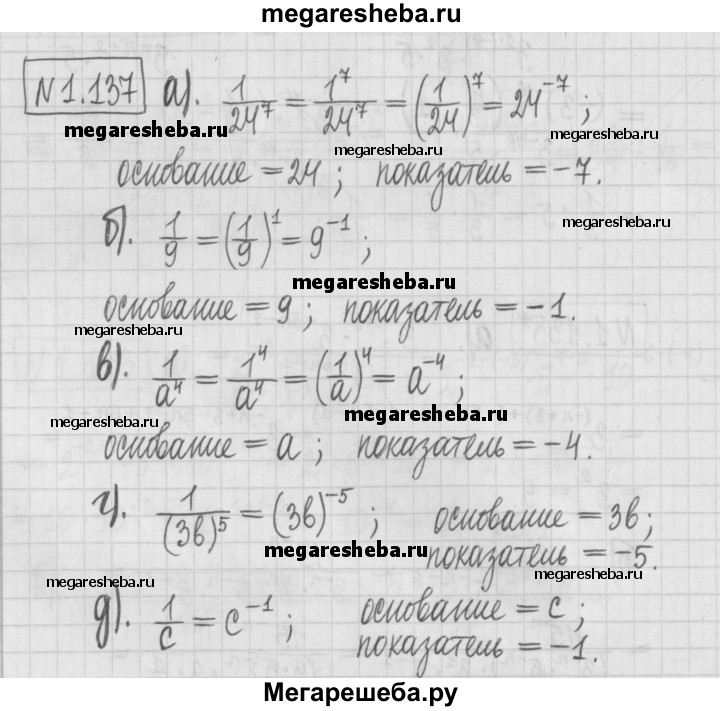 megaresheba.ru
N1.137 а). 1/24^7 = 1^7/24^7 = (1/24)^7 = 24^-7 ;
megaresheba.ru megaresheba.ru
основание = 24 ; показатель = -7.
megaresheba.ru
б). 1/9 = (1/9)^1 = 9^-1 ;
megaresheba.ru
основание = 9 ; показатель = -1.
megaresheba.ru
в). 1/a^4 = 1^4/a^4 = (1/a)^4 = a^-4 ;
megaresheba.ru megaresheba.ru
основание = a ; показатель = -4.
г). 1/(3b)^5 = (3b)^-5 ; основание = 3b ;
megaresheba.ru показатель = -5.
megaresheba.ru megaresheba.ru
д). 1/c = c^-1 ; основание = c ;
показатель = -1.
Мегарешеба.ру